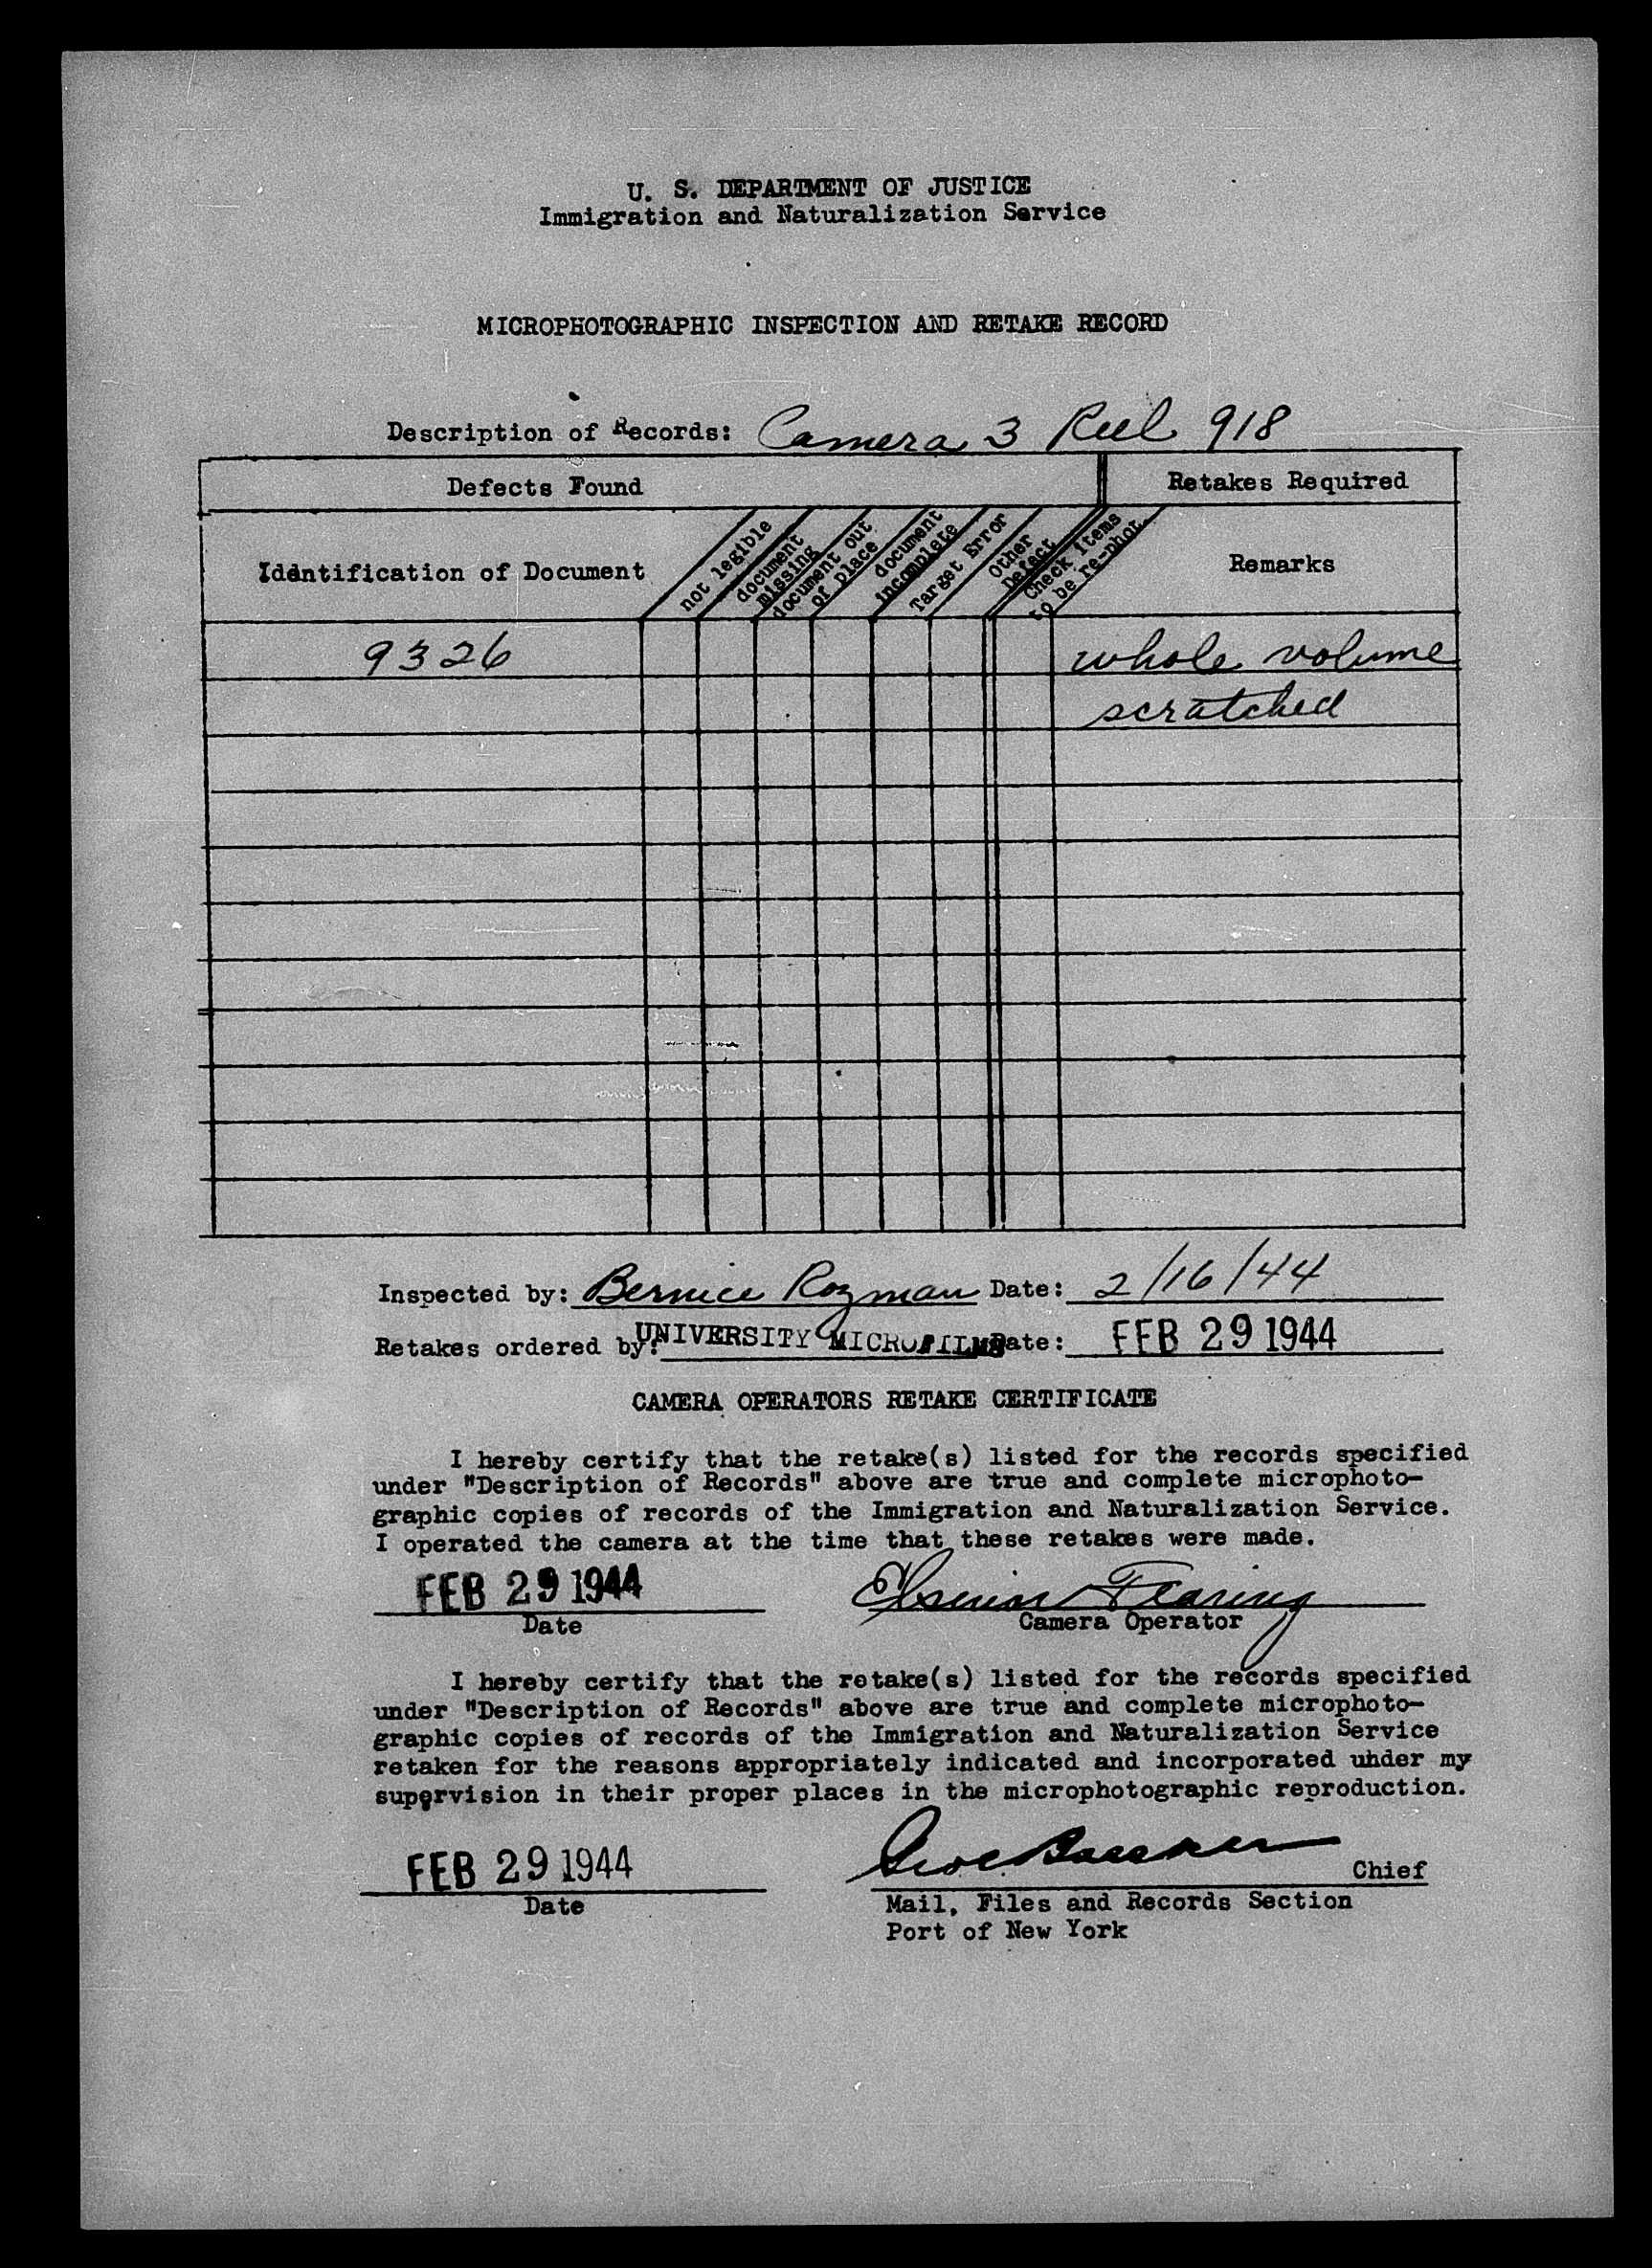 U. S. DEPARTMENT OF JUSTICE
Immigration and Naturalization Service
MICROPHOTOGRAPHIC INSPECTION AND RETAKE RECORD
Description of Records: Camera 3 Reel 918
Defects Found
Retakes Required
Identification of Document
not legible
document
missing
document out
of place
document
incomplete
Target Error
Other
Defect
Check items
to be re-phot.
Remarks
9326
whole volume
scratched
Inspected by: Bernice Rozman Date: 2/16/44
Retakes ordered by: UNIVERSITY MICROFILMS Date: FEB 29 1944
CAMERA OPERATORS RETAKE CERTIFICATE
I hereby certify that the retake(s) listed for the records specified
under "Description of Records" above are true and complete microphoto-
graphic copies of records of the Immigration and Naturalization Service.
I operated the camera at the time that these retakes were made.
FEB 29 1944
Date
Fearing
Camera Operator
I hereby certify that the retake(s) listed for the records specified
under "Description of Records" above are true and complete microphoto-
graphic copies of records of the Immigration and Naturalization Service
retaken for the reasons appropriately indicated and incorporated under my
supervision in their proper places in the microphotographic reproduction.
FEB 29 1944
Date
Chief
Mail, Files and Records Section
Port of New York